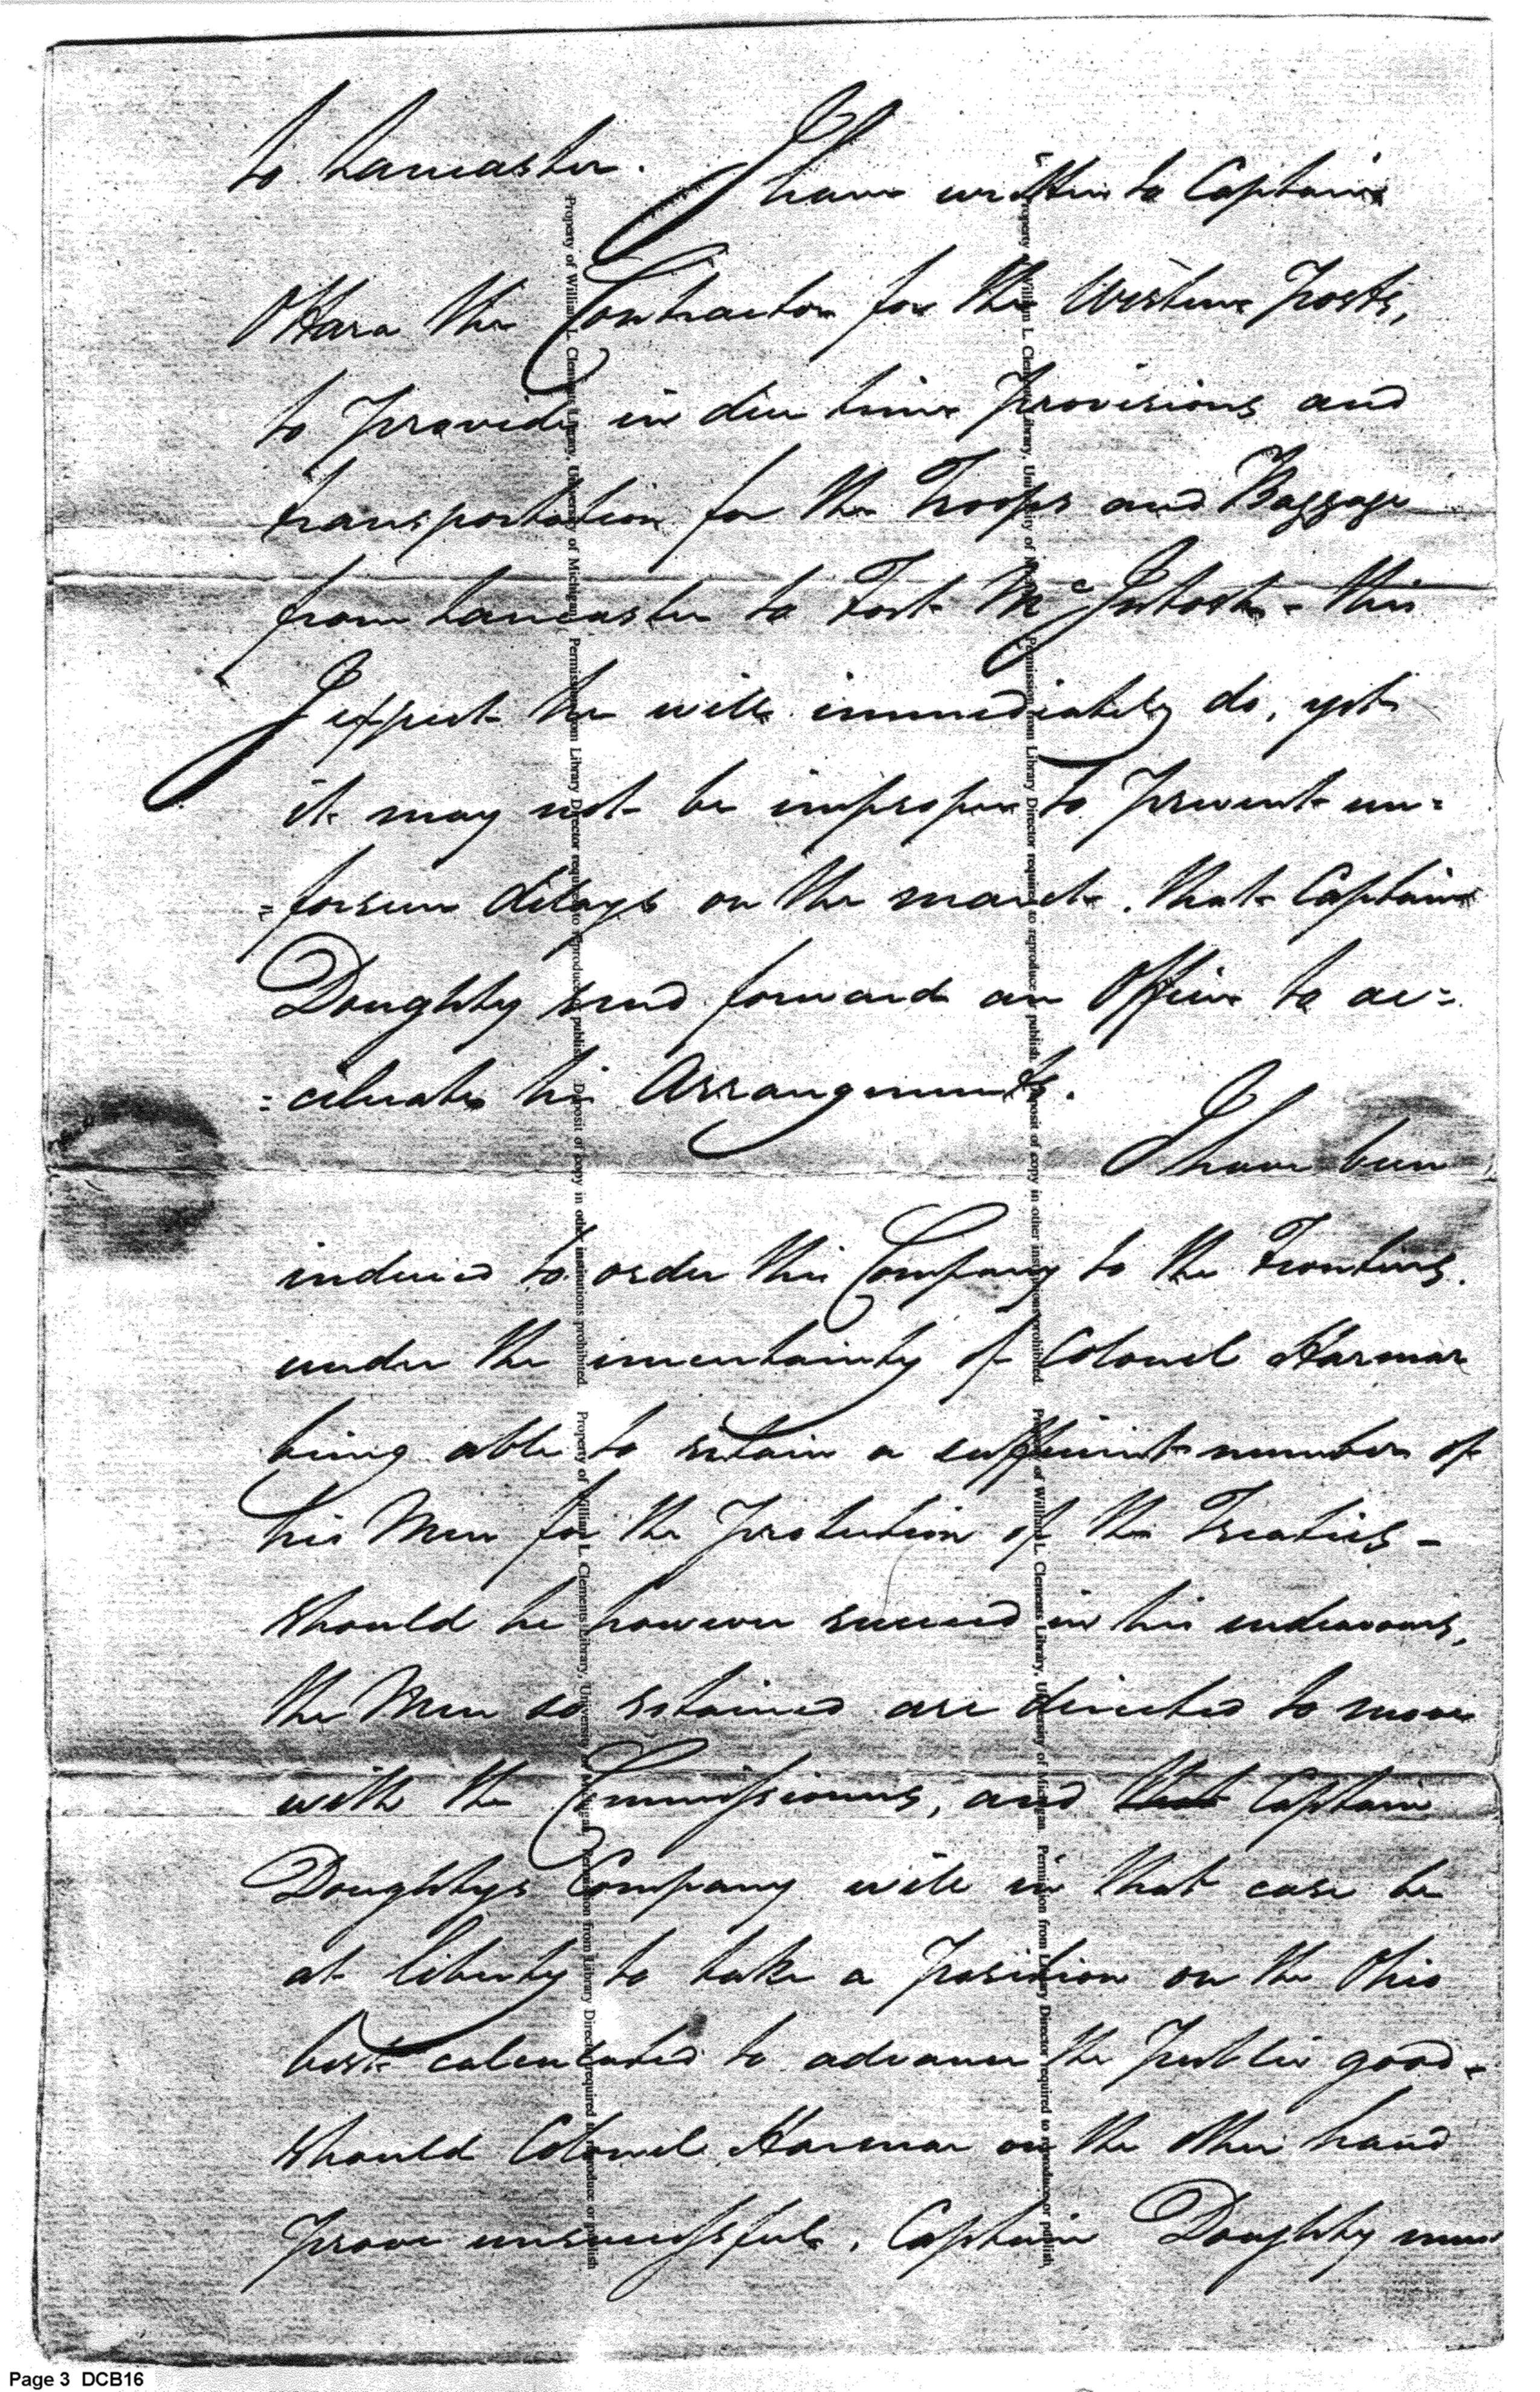 to Lancaster. I have written to Captain
OHara the Contractor for the Western Posts,
to provide in due time provisions and
transportation for the Troops and Baggage
from Lancaster to Fort McIntosh - this
I expect he will immediately do, yet
it may not be improper to prevent un=
=forseen delays on the march, that Captain
Doughty send forward an Officer to ac=
=celerate his Arrangements.
I have been
induced to order this Company to the Frontiers,
under the uncertainty of Colonel Harmar
being able to retain a sufficient number of
his Men for the Protection of the Treaties -
Should he however succeed in his endeavours,
the Men so retained are directed to move
with the Commissioners, and that Captain
Doughtys Company will in that case be
at liberty to take a Position on the Ohio
best calculated to advance the Public good -
Should Colonel Harmar on the other hand
prove unsuccessful, Captain Doughty must
Property of William L. Clements Library, University of Michigan. Permission from Library Director required to reproduce or publish. Deposit of copy in other institutions prohibited. Property of William L. Clements Library, University of Michigan. Permission from Library Director required to reproduce or publish.
Property of William L. Clements Library, University of Michigan. Permission from Library Director required to reproduce or publish. Deposit of copy in other institutions prohibited. Property of William L. Clements Library, University of Michigan. Permission from Library Director required to reproduce or publish.
Page 3 DCB16